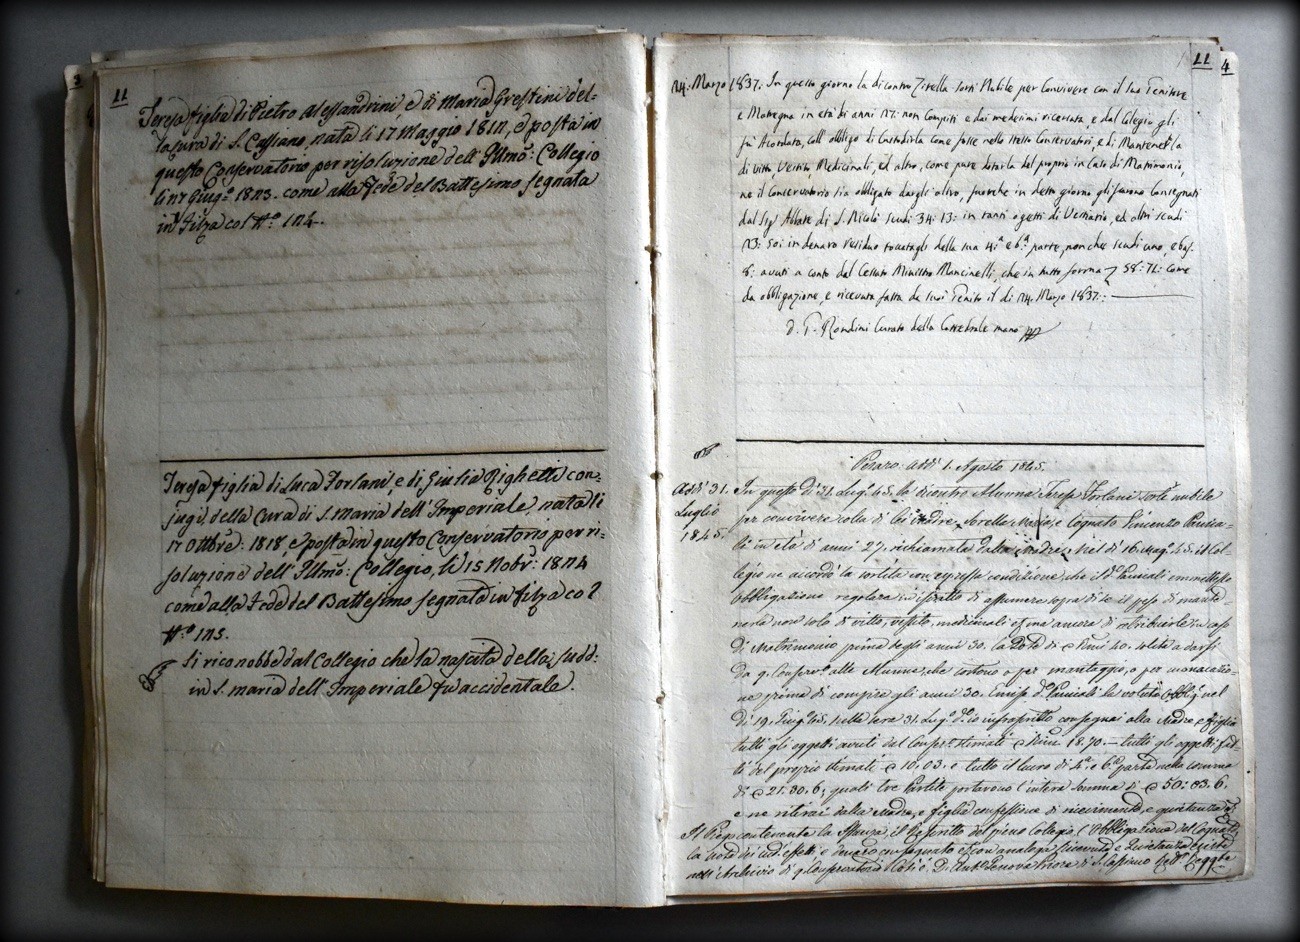 11
Teresa figlia di Pietro Alessandrini, e di Maria Grestini del-
la Cura di S. Cassiano, nata li 17 Maggio 1812, e posta in
questo Conservatorio per risoluzione dell' Illmo: Collegio
li Giugo 1823. come alla Fede del Battesimo segnata
in Filza col No 124.
Teresa figlia di Luca Forlani, e di Giulia Righetti con-
jugi della Cura di S. Maria dell' Imperiale, nata li
17 Ottbre: 1818, e posta in questo Conservatorio per ri-
soluzione dell' Illmo: Collegio, li 15 Nobr: 1824
come alla Fede del Battesimo segnata in filza col
No 125.
Si riconobbe dal Collegio che la nascita della sudd:
in S. Maria dell' Imperiale fu accidentale.
11
4
24: Marzo 1837. In questo giorno la di contro Zitella sortì Nubile per Convivere con il suo Genitore
e Matregna in età di anni 27: non Compiti e dai medesimi ricevuta, e dal Collegio gli
fù Accordata, coll' obbligo di Custodirla come fosse nello stesso Conservatorio, e di Mantenerla
di Vitto, Vestito, Medicinali, ed altro, come pure dotarla del proprio in Caso di Matrimonio,
ne il Conservatorio sia obligato dargli altro, fuorche in detto giorno gli furono Consegnati
dal Sigr Abbate di S. Nicolò Scudi 34: 13: in tanti ogetti di Vestiario, ed altri scudi
23: 50: in denaro residuo toccatogli della sua 4:a e 6:a parte, nonche scudi uno, e baj:
8: avuti a conto dal Cessato Ministro Mancinelli, che in tutto forma 58: 71: come
da obbligazione, e ricevuta fatta da suoi Genitori il dì 24. Marzo 1837:
D. F. Rondini Curato della Cattedrale mano
Pesaro: addì 1. Agosto 1845.
Addì 31.
Luglio
1845.
In questo dì 31. Lugo 45. la dicontro Alunna Teresa Forlani sortì nubile
per convivere colla di lei Madre, Sorella e Cognato Vincenzo
in età di anni 27, richiamata dalla Madre; nel dì 16. Mago 45. il Col-
legio ne accordò la sortita con espressa condizione, che il do emettesse
obbligazione regolare in ispratto di assumere sopra di se il peso di mante-
nerla non solo di vitto, vestito, medicinali, e ma ancora di retribuirle in caso
di Matrimonio prima degli anni 30. la Dote di Scudi 40. solita a darsi
da q. Conservo alle Alunne, che sortono o per maritaggio, o per monacazio-
ne prima di compire gli anni 30. Emise do la voluta Obblig. nel
dì 19. Giugo 45. nella sera 31. Lugo do io infrascritto consegnai alla Madre, e figlia
tutti gli oggetti avuti dal Conservo stimati Scudi 18.70. — tutti gli oggetti fat-
ti del proprio stimati 10.03. e tutto il lucro di 4a e 6a parte nella somma
di 21.30.6, quali tre Partite portarono l'intera somma di 50:03.6.
e ne ritirai dalla Madre, e figlia confessione di ricevimento, e quietanza.
Il Piego contenente la Istanza, il Rescritto del pieno Collegio, l'Obbligazione del Cognato,
la nota dei sudd. effetti e denaro consegnato con analoga Ricevuta e Quietanza esiste
nell' Archivio di q. Conservatorio. Così è. D. Anto Priore di S. Cassiano